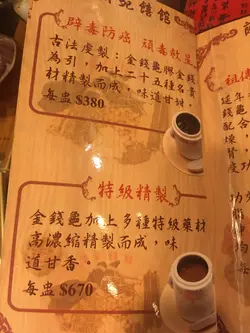 記饍館
辟毒防癌 頑毒效
古法虔製：金錢龜膠金錢
為引，加上二十五種名貴
材精製而成，味道甘
每盅 $380
特級精製
金錢龜加上多種特級藥材
高濃縮精製而成，味
道甘香。
每盅 $670
祖傳